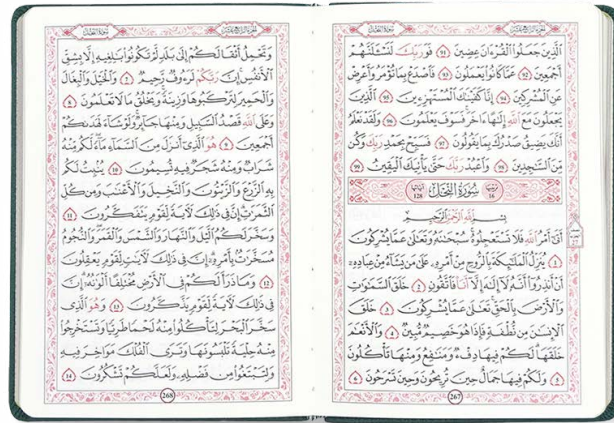 الَّذِينَ جَعَلُوا الْقُرْءَانَ عِضِينَ ٩١ فَوَرَبِّكَ لَنَسْـَٔلَنَّهُمْ
أَجْمَعِينَ ٩٢ عَمَّا كَانُوا يَعْمَلُونَ ٩٣ فَاصْدَعْ بِمَا تُؤْمَرُ وَأَعْرِضْ
عَنِ الْمُشْرِكِينَ ٩٤ إِنَّا كَفَيْنَٰكَ الْمُسْتَهْزِءِينَ ٩٥ الَّذِينَ
يَجْعَلُونَ مَعَ اللَّهِ إِلَٰهًا ءَاخَرَ فَسَوْفَ يَعْلَمُونَ ٩٦ وَلَقَدْ نَعْلَمُ
أَنَّكَ يَضِيقُ صَدْرُكَ بِمَا يَقُولُونَ ٩٧ فَسَبِّحْ بِحَمْدِ رَبِّكَ وَكُن
مِّنَ السَّٰجِدِينَ ٩٨ وَاعْبُدْ رَبَّكَ حَتَّىٰ يَأْتِيَكَ الْيَقِينُ ٩٩
16 سُورَةُ النَّحْلِ 128
بِسْمِ اللَّهِ الرَّحْمَٰنِ الرَّحِيمِ
أَتَىٰ أَمْرُ اللَّهِ فَلَا تَسْتَعْجِلُوهُ سُبْحَٰنَهُ وَتَعَٰلَىٰ عَمَّا يُشْرِكُونَ
١ يُنَزِّلُ الْمَلَٰٓئِكَةَ بِالرُّوحِ مِنْ أَمْرِهِ عَلَىٰ مَن يَشَآءُ مِنْ عِبَادِهِ
أَنْ أَنذِرُوٓا أَنَّهُ لَآ إِلَٰهَ إِلَّآ أَنَا فَاتَّقُونِ ٢ خَلَقَ السَّمَٰوَٰتِ
وَالْأَرْضَ بِالْحَقِّ تَعَٰلَىٰ عَمَّا يُشْرِكُونَ ٣ خَلَقَ
الْإِنسَٰنَ مِن نُّطْفَةٍ فَإِذَا هُوَ خَصِيمٌ مُّبِينٌ ٤ وَالْأَنْعَٰمَ
خَلَقَهَا لَكُمْ فِيهَا دِفْءٌ وَمَنَٰفِعُ وَمِنْهَا تَأْكُلُونَ
٥ وَلَكُمْ فِيهَا جَمَالٌ حِينَ تُرِيحُونَ وَحِينَ تَسْرَحُونَ ٦
267
وَتَحْمِلُ أَثْقَالَكُمْ إِلَىٰ بَلَدٍ لَّمْ تَكُونُوا بَٰلِغِيهِ إِلَّا بِشِقِّ
الْأَنفُسِ إِنَّ رَبَّكُمْ لَرَءُوفٌ رَّحِيمٌ ٧ وَالْخَيْلَ وَالْبِغَالَ
وَالْحَمِيرَ لِتَرْكَبُوهَا وَزِينَةً وَيَخْلُقُ مَا لَا تَعْلَمُونَ ٨
وَعَلَى اللَّهِ قَصْدُ السَّبِيلِ وَمِنْهَا جَآئِرٌ وَلَوْ شَآءَ لَهَدَىٰكُمْ
أَجْمَعِينَ ٩ هُوَ الَّذِيٓ أَنزَلَ مِنَ السَّمَآءِ مَآءً لَّكُم مِّنْهُ
شَرَابٌ وَمِنْهُ شَجَرٌ فِيهِ تُسِيمُونَ ١٠ يُنۢبِتُ لَكُم
بِهِ الزَّرْعَ وَالزَّيْتُونَ وَالنَّخِيلَ وَالْأَعْنَٰبَ وَمِن كُلِّ
الثَّمَرَٰتِ إِنَّ فِي ذَٰلِكَ لَـَٔايَةً لِّقَوْمٍ يَتَفَكَّرُونَ ١١
وَسَخَّرَ لَكُمُ الَّيْلَ وَالنَّهَارَ وَالشَّمْسَ وَالْقَمَرَ وَالنُّجُومُ
مُسَخَّرَٰتٌۢ بِأَمْرِهِ إِنَّ فِي ذَٰلِكَ لَـَٔايَٰتٍ لِّقَوْمٍ يَعْقِلُونَ
١٢ وَمَا ذَرَأَ لَكُمْ فِي الْأَرْضِ مُخْتَلِفًا أَلْوَٰنُهُ إِنَّ
فِي ذَٰلِكَ لَـَٔايَةً لِّقَوْمٍ يَذَّكَّرُونَ ١٣ وَهُوَ الَّذِي
سَخَّرَ الْبَحْرَ لِتَأْكُلُوا مِنْهُ لَحْمًا طَرِيًّا وَتَسْتَخْرِجُوا
مِنْهُ حِلْيَةً تَلْبَسُونَهَا وَتَرَى الْفُلْكَ مَوَاخِرَ فِيهِ
وَلِتَبْتَغُوا مِن فَضْلِهِ وَلَعَلَّكُمْ تَشْكُرُونَ ١٤
268